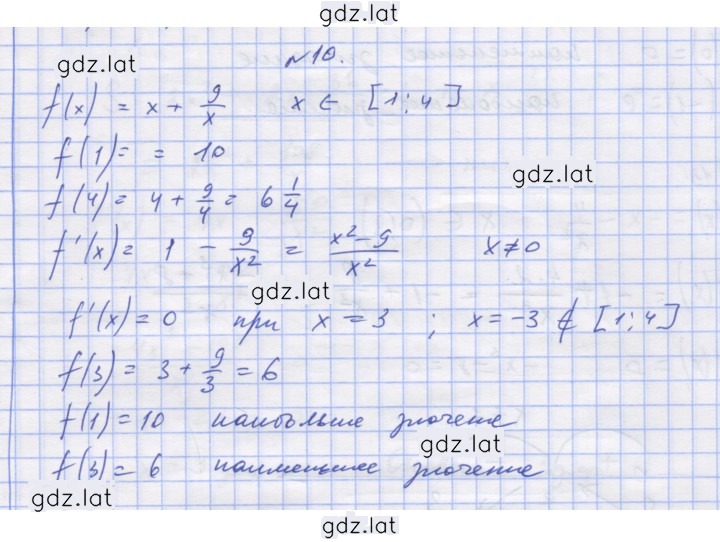 gdz.lat
№10.
gdz.lat
f(x) = x + 9/x x ∈ [1; 4]
f(1) = = 10
gdz.lat
f(4) = 4 + 9/4 = 6 1/4
f'(x) = 1 - 9/x² = x² - 9/x² x ≠ 0
gdz.lat
f'(x) = 0 при x = 3 ; x = -3 ∉ [1; 4]
f(3) = 3 + 9/3 = 6
f(1) = 10 наибольше значение
gdz.lat
f(3) = 6 наименьшее значение
gdz.lat
gdz.lat